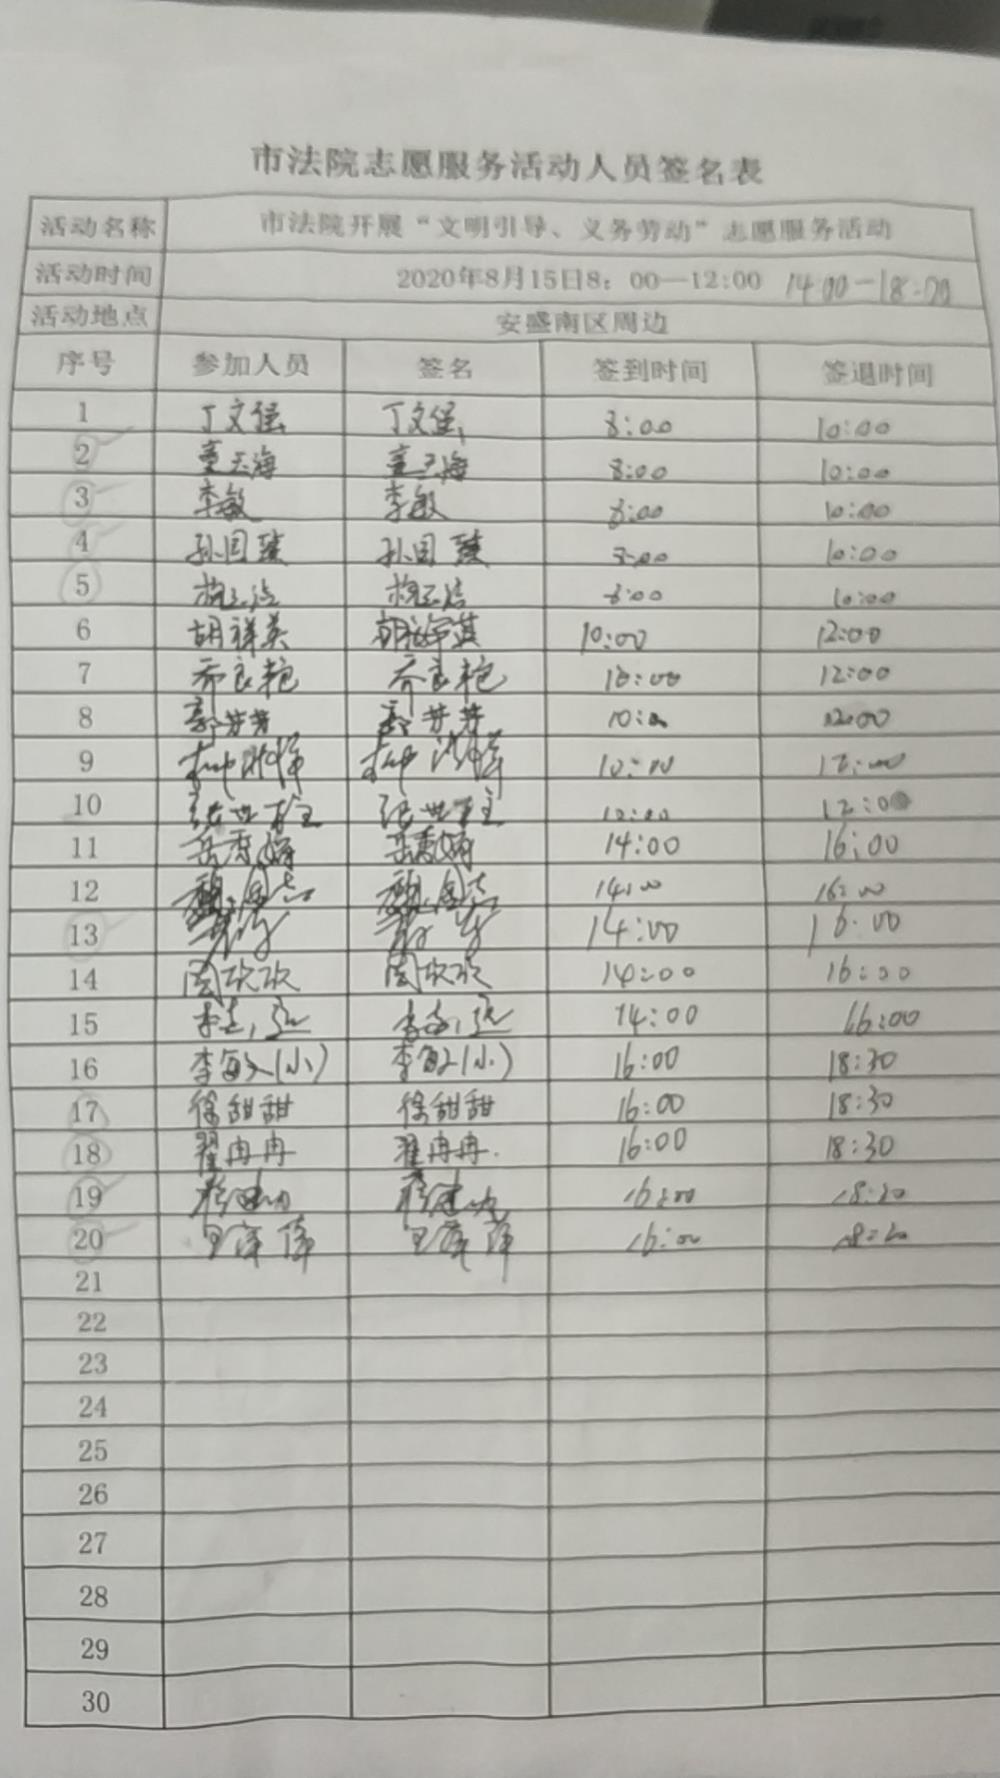 市法院志愿服务活动人员签名表
活动名称 市法院开展“文明引导、义务劳动”志愿服务活动
活动时间 2020年8月15日8：00—12:00 14:00-18:00
活动地点 安盛南区周边
序号 参加人员 签名 签到时间 签退时间
1 丁文强 丁文强 8:00 10:00
2 8:00 10:00
3 李敏 李敏 8:00 10:00
4 孙国臻 孙国臻 8:00 10:00
5 8:00 10:00
6 胡祥英 10:00 12:00
7 乔良艳 乔良艳 10:00 12:00
8 郭芳芳 郭芳芳 10:00 12:00
9 10:00 12:00
10 张世柱 张世柱 10:00 12:00
11 岳秀娟 岳秀娟 14:00 16:00
12 魏国志 魏国志 14:00 16:00
13 14:00 16:00
14 周欢欢 周欢欢 14:00 16:00
15 14:00 16:00
16 李敏(小) 李敏(小) 16:00 18:30
17 徐甜甜 徐甜甜 16:00 18:30
18 翟冉冉 翟冉冉. 16:00 18:30
19 16:00 18:30
20 16:00
21
22
23
24
25
26
27
28
29
30